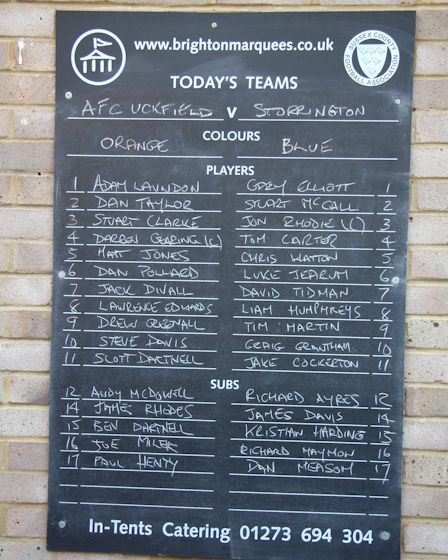 www.brightonmarquees.co.uk
SUSSEX COUNTY FOOTBALL ASSOCIATION
TODAY'S TEAMS
AFC UCKFIELD V STORRINGTON
COLOURS
ORANGE BLUE
PLAYERS
1 ADAM LAVNDON GARY ELLIOTT 1
2 DAN TAYLOR STUART McCALL 2
3 STUART CLARKE JON RHODIE (C) 3
4 DARREN GEARING (C) TOM CARTER 4
5 MATT JONES CHRIS HATTON 5
6 DAN POLLARD LUKE JEARUM 6
7 JACK DIVALL DAVID TIDMAN 7
8 LAWRENCE EDWARDS LIAM HUMPHREYS 8
9 DREW GREENALL TIM MARTIN 9
10 STEVE DAVIS CRAIG GRANTHAM 10
11 SCOTT DARTNELL JAKE COCKERTON 11
SUBS
12 ANDY McDOWELL RICHARD AYRES 12
14 JAMES RHODES JAMES DAVIS 14
15 BEN DARTNELL KRISTIAN HARDING 15
16 JOE RICHARD HAYMON 16
17 PAUL HENTY DAN MEASOM 17
In-Tents Catering 01273 694 304